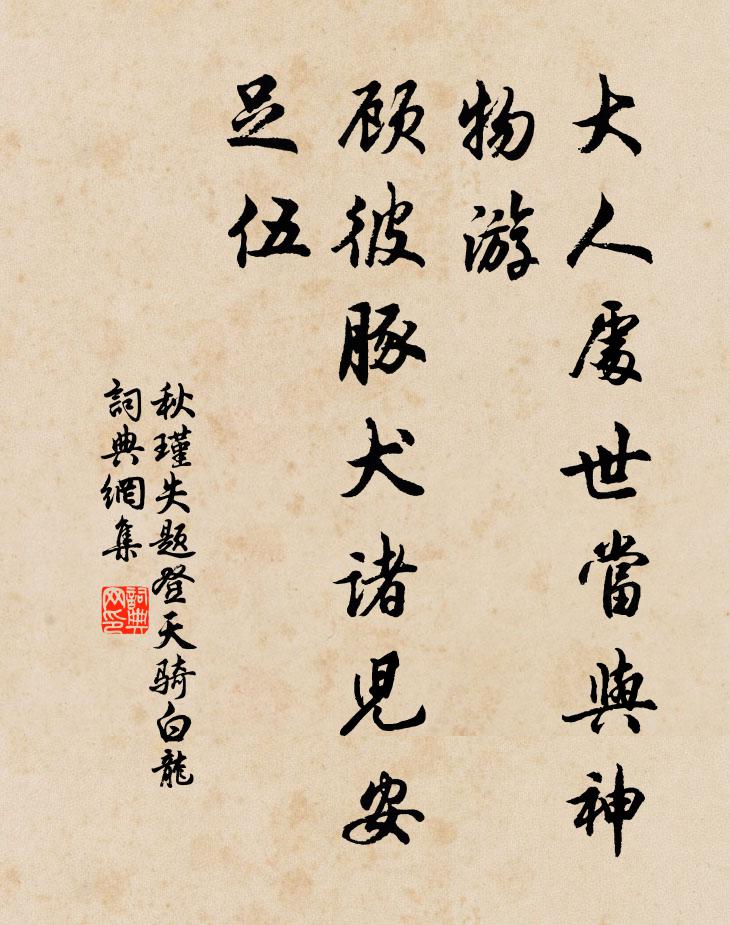 大人處世當與神
物游
顾彼豚犬諸児安
足伍
秋瑾失题登天骑白龍
詞典網集
詞典网印